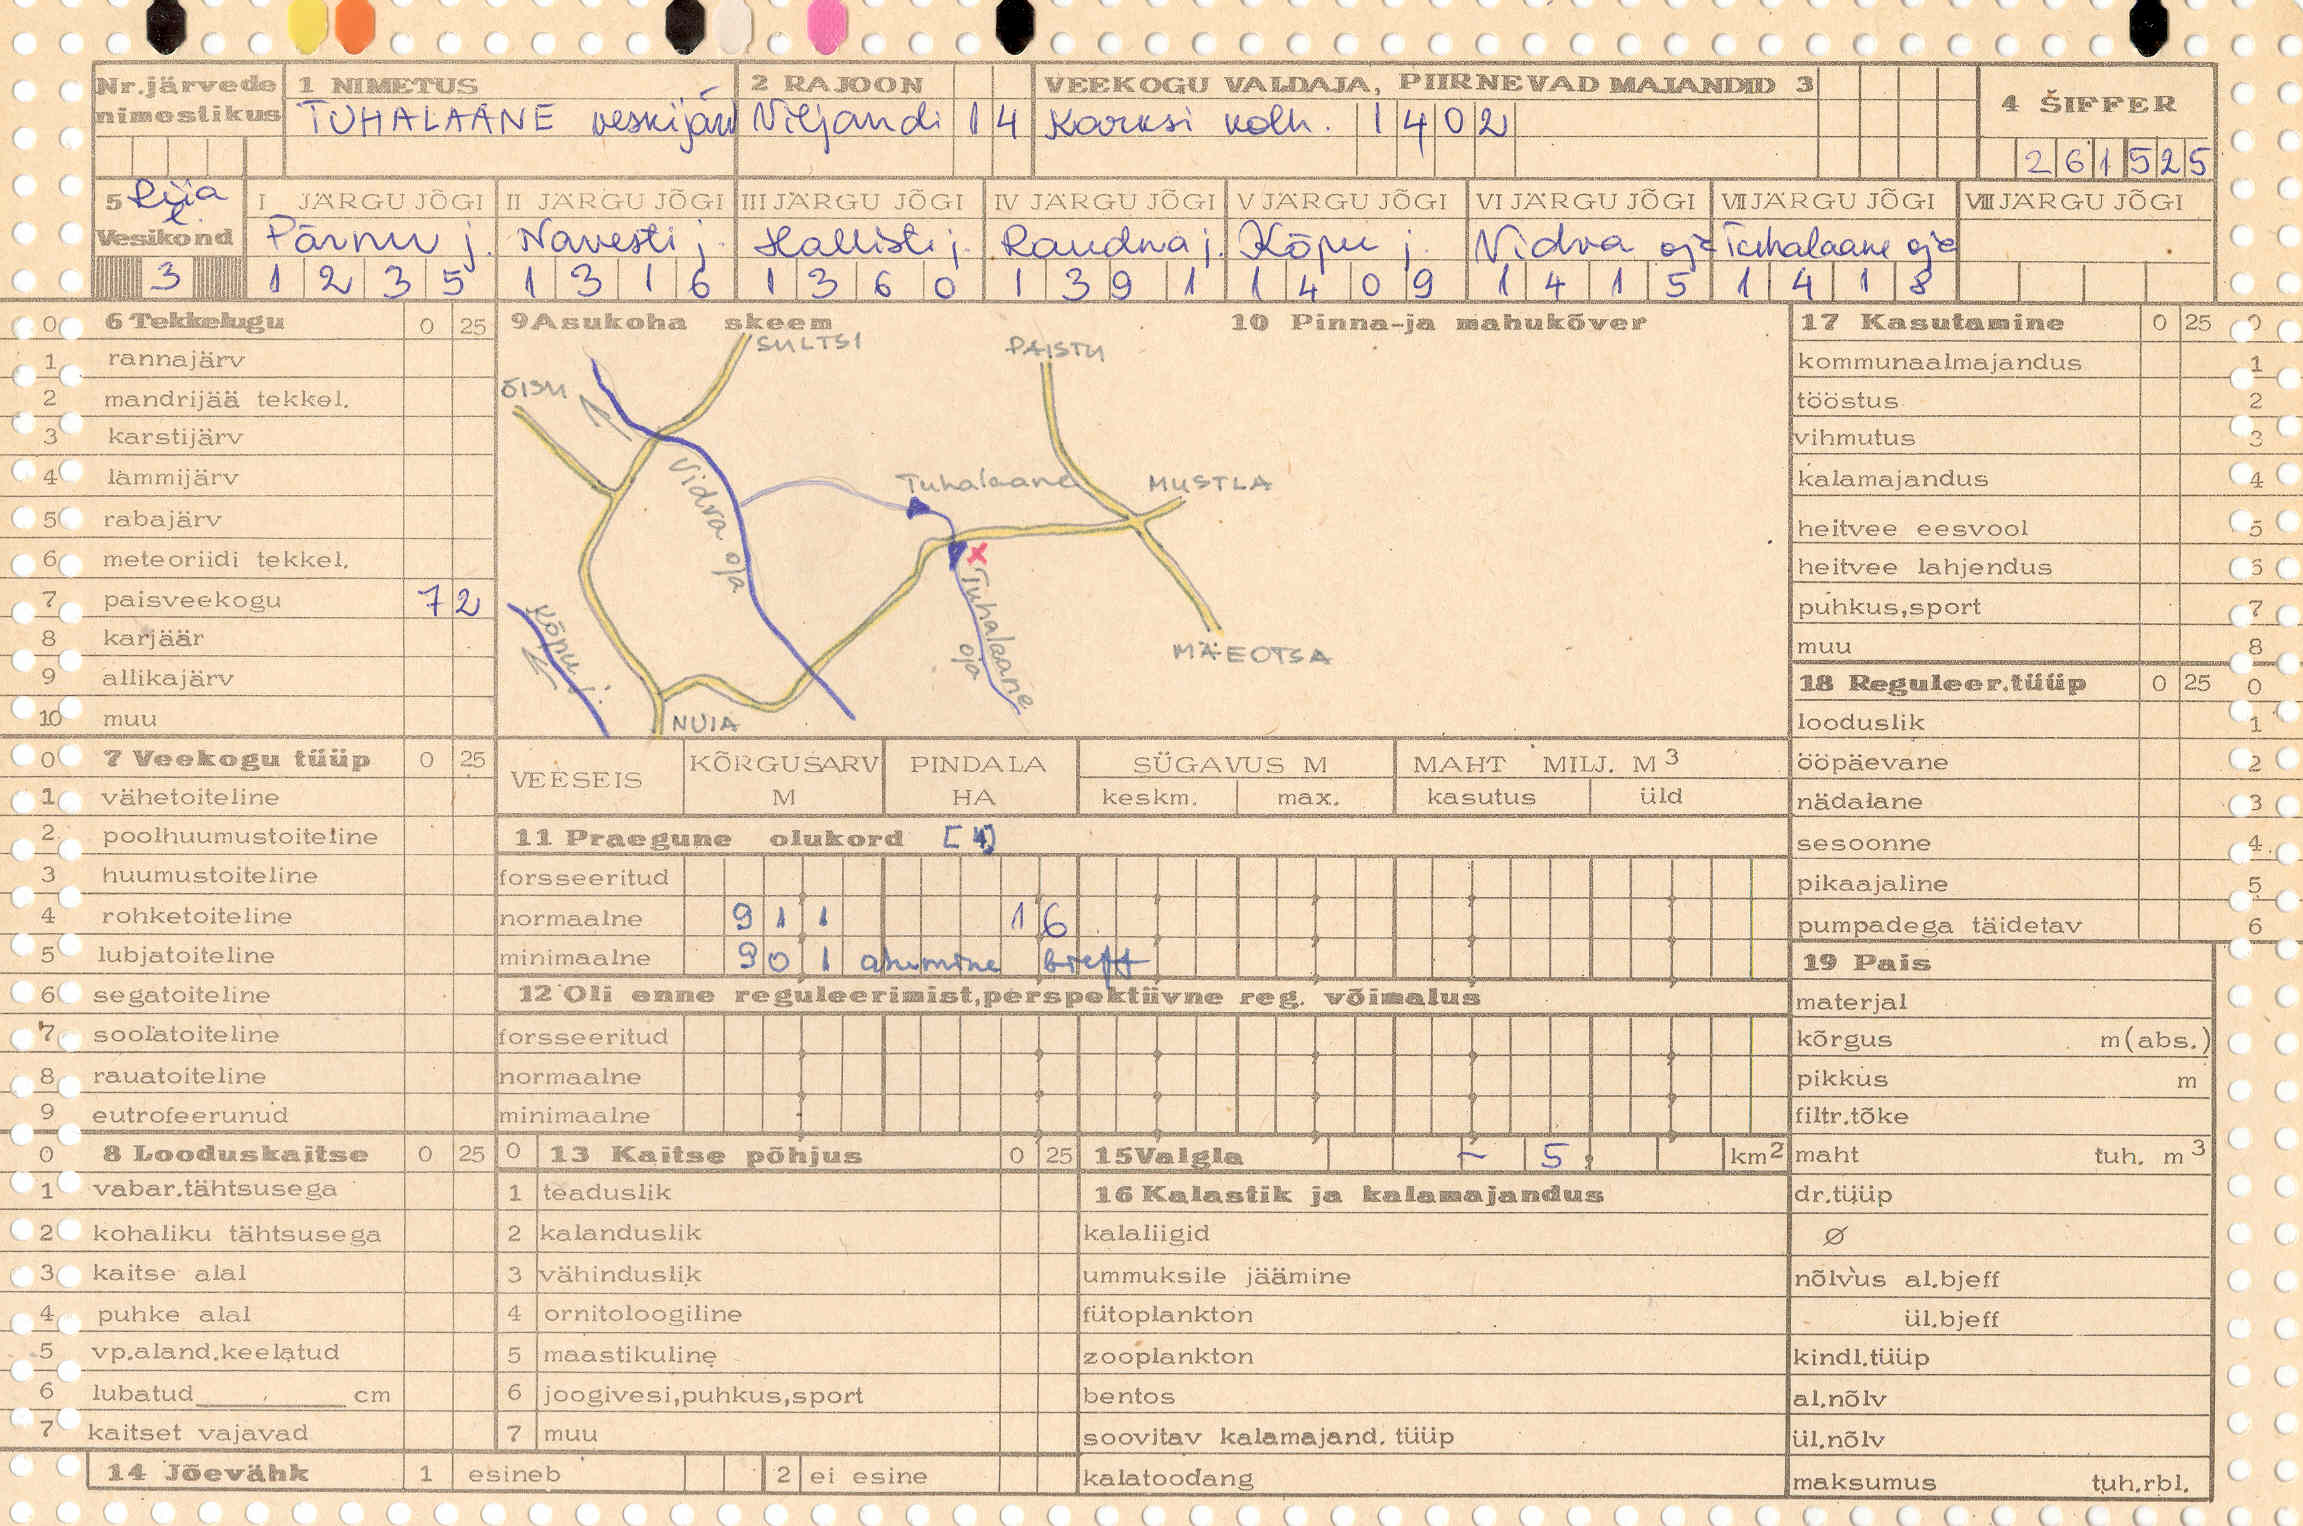 Nr.järvede nimestikus
1 NIMETUS
TUHALAANE veskijärv
2 RAJOON
Viljandi 14
VEEKOGU VALDAJA, PIIRNEVAD MAJANDID 3
Karksi kolh. 1402
4 ŠIFFER
261525
5 Riia l.
Vesikond
3
I JÄRGU JÕGI
Pärnu j.
1235
II JÄRGU JÕGI
Navesti j.
1316
III JÄRGU JÕGI
Hallisti j.
1360
IV JÄRGU JÕGI
Raudna j.
1391
V JÄRGU JÕGI
Kõpu j.
1409
VI JÄRGU JÕGI
Vidva oja
1415
VII JÄRGU JÕGI
Tuhalaane oja
1418
VIII JÄRGU JÕGI
0 6 Tekkelugu 0 25
1 rannajärv
2 mandrijää tekkel.
3 karstijärv
4 lammijärv
5 rabajärv
6 meteoriidi tekkel.
7 paisveekogu 72
8 karjäär
9 allikajärv
10 muu
0 7 Veekogu tüüp 0 25
1 vähetoiteline
2 poolhuumustoiteline
3 huumustoiteline
4 rohketoiteline
5 lubjatoiteline
6 segatoiteline
7 soolatoiteline
8 rauatoiteline
9 eutrofeerunud
0 8 Looduskaitse 0 25
1 vabar.tähtsusega
2 kohaliku tähtsusega
3 kaitse alal
4 puhke alal
5 vp.aland.keelatud
6 lubatud cm
7 kaitset vajavad
14 Jõevähk 1 esineb 2 ei esine
9 Asukoha skeem
10 Pinna-ja mahukõver
SULTSI
PAISTU
ÕISU
Tuhalaane
MUSTLA
Vidva oja
Tuhalaane oja
Kõpu j.
MÄEOTSA
NUIA
VEESEIS
KÕRGUSARV M
PINDALA HA
SÜGAVUS M
keskm. max.
MAHT MILJ. M3
kasutus üld
11 Praegune olukord [4]
forsseeritud
normaalne 911 16
minimaalne 901 alumine bieff
12 Oli enne reguleerimist,perspektiivne reg. võimalus
forsseeritud
normaalne
minimaalne
0 13 Kaitse põhjus 0 25
1 teaduslik
2 kalanduslik
3 vähinduslik
4 ornitoloogiline
5 maastikuline
6 joogivesi,puhkus,sport
7 muu
15 Valgla ~ 5 km2
16 Kalastik ja kalamajandus
kalaliigid
ummuksile jäämine
fütoplankton
zooplankton
bentos
soovitav kalamajand. tüüp
kalatoodang
17 Kasutamine 0 25 0
kommunaalmajandus 1
tööstus 2
vihmutus 3
kalamajandus 4
heitvee eesvool 5
heitvee lahjendus 6
puhkus,sport 7
muu 8
18 Reguleer.tüüp 0 25 0
looduslik 1
ööpäevane 2
nädalane 3
sesoonne 4
pikaajaline 5
pumpadega täidetav 6
19 Pais
materjal
kõrgus m(abs.)
pikkus m
filtr.tõke
maht tuh. m3
dr.tüüp
Ø
nõlvus al.bjeff
ül.bjeff
kindl.tüüp
al.nõlv
ül.nõlv
maksumus tuh.rbl.